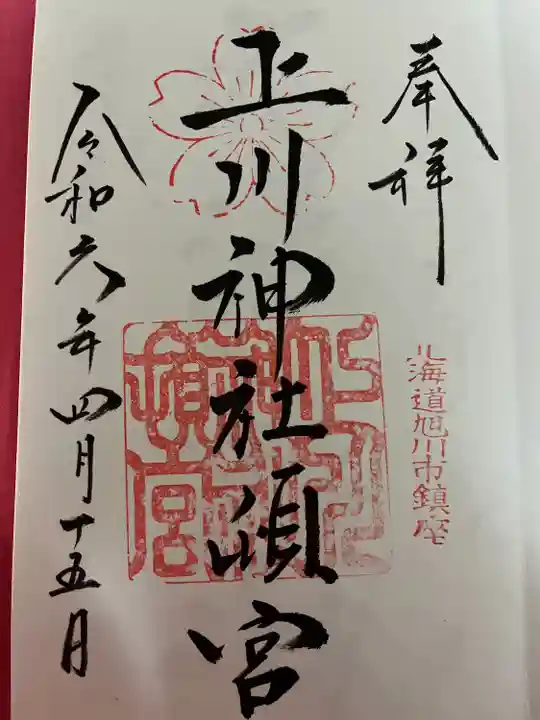 奉拝
北海道旭川市鎮座
上川神社頓宮
令和六年四月十五日